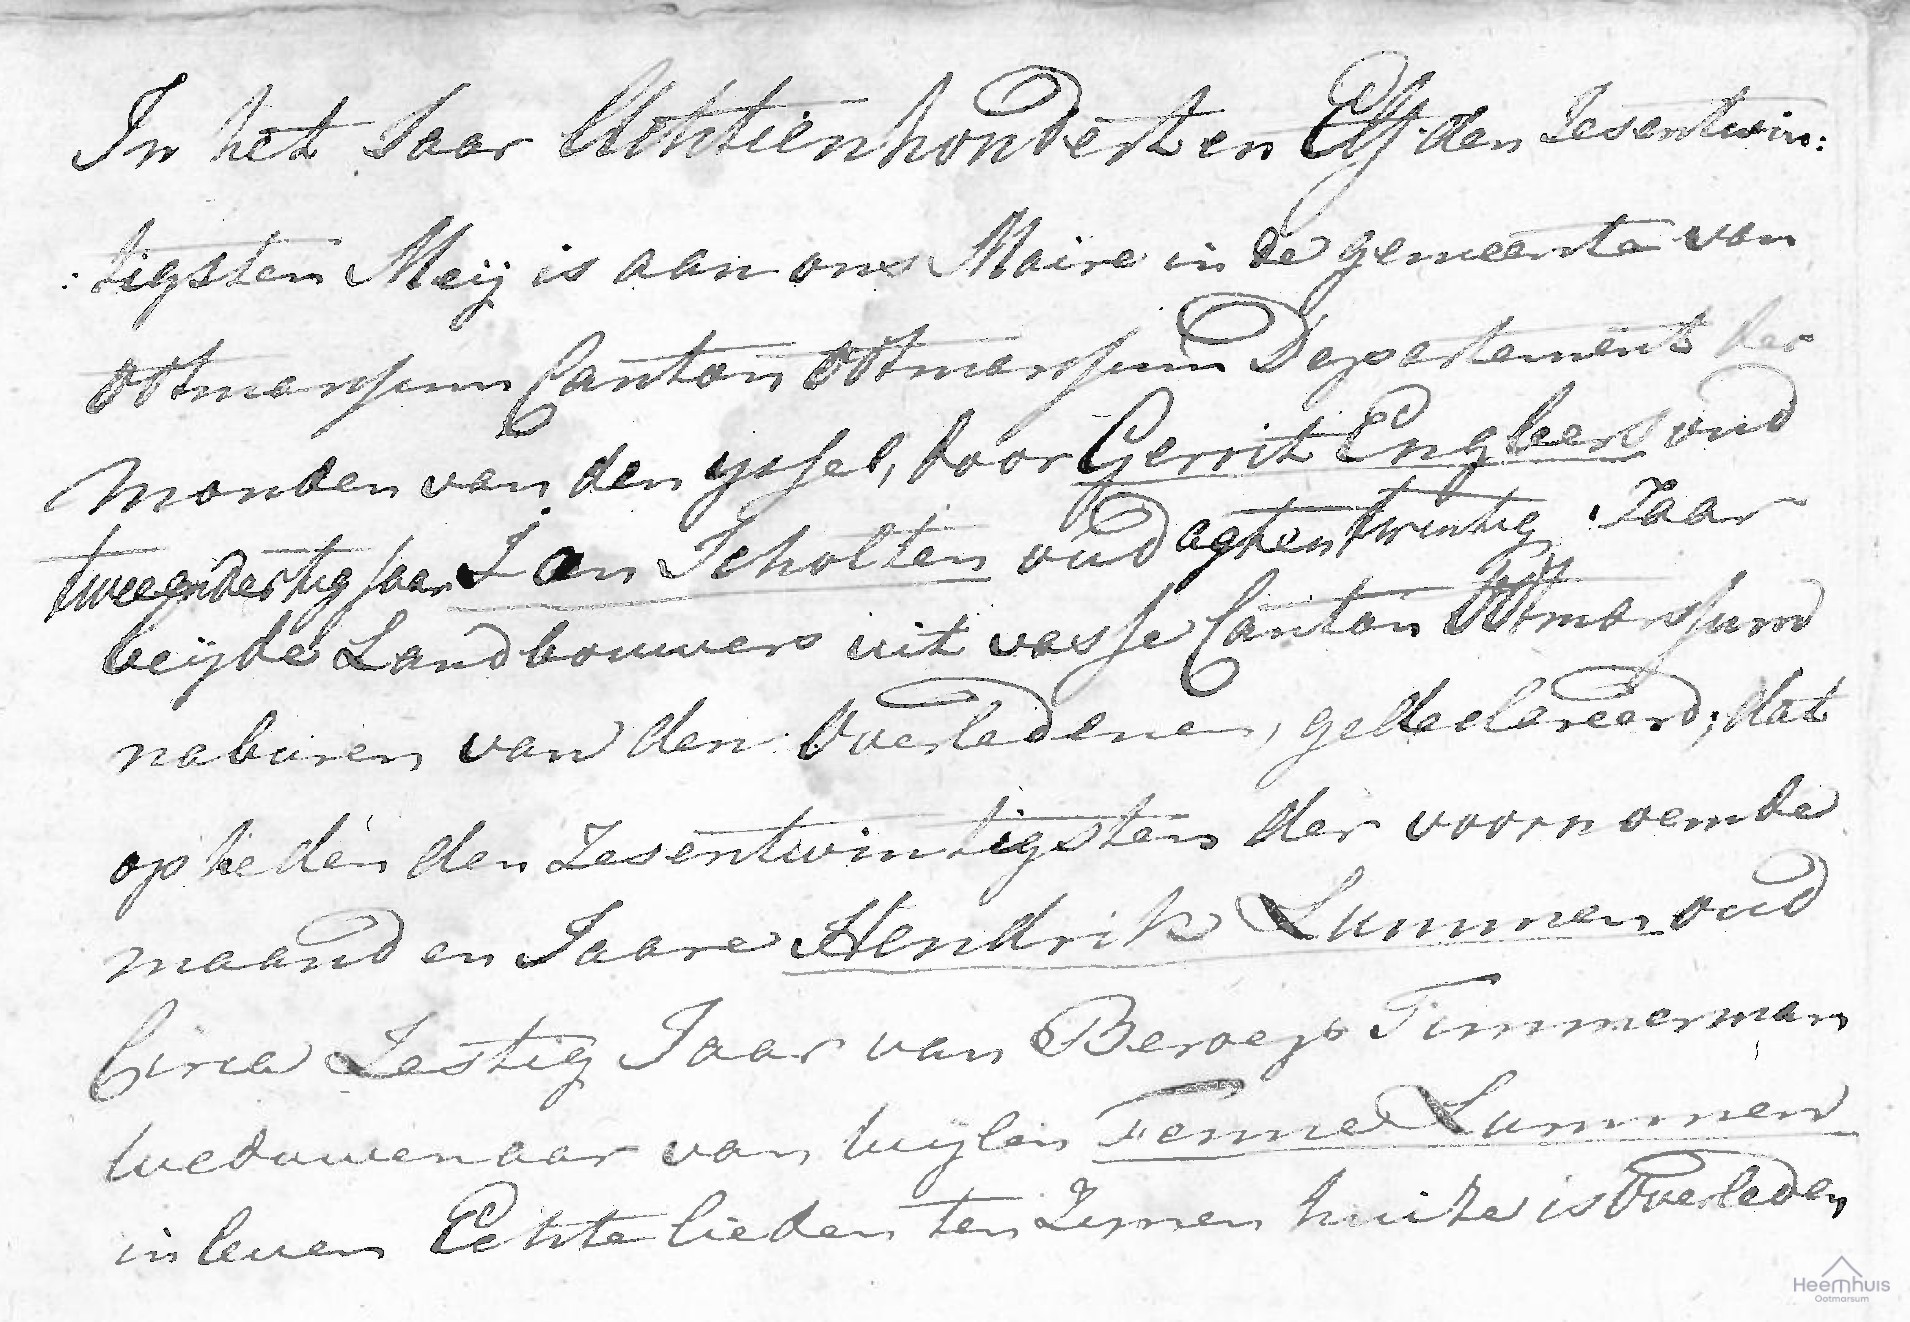 In het Jaar Achtienhondert en Elf den Zesentwin:
:tigsten Meij is aan ons Maire in de gemeente van
Otmarssum Canton Otmarssum Departement der
monden van den yssel, door Gerrit Engbers oud
tweendertig jaar Jan Scholten oud agtentwintig Jaar
beijde Landbouwers uit vasse Canton Otmarssum
naburen van den Overledenen, gedeclareerd; dat
op heden den Zesentwintigsten der voornoemde
maand en Jaare Hendrik Lummen oud
Circa Zestig Jaar van Beroep Timmerman
weduwenaar van wijlen Fenne Lummen
in leven Echte lieden ten Zynen huize is Overleden
Heemhuis
Ootmarsum